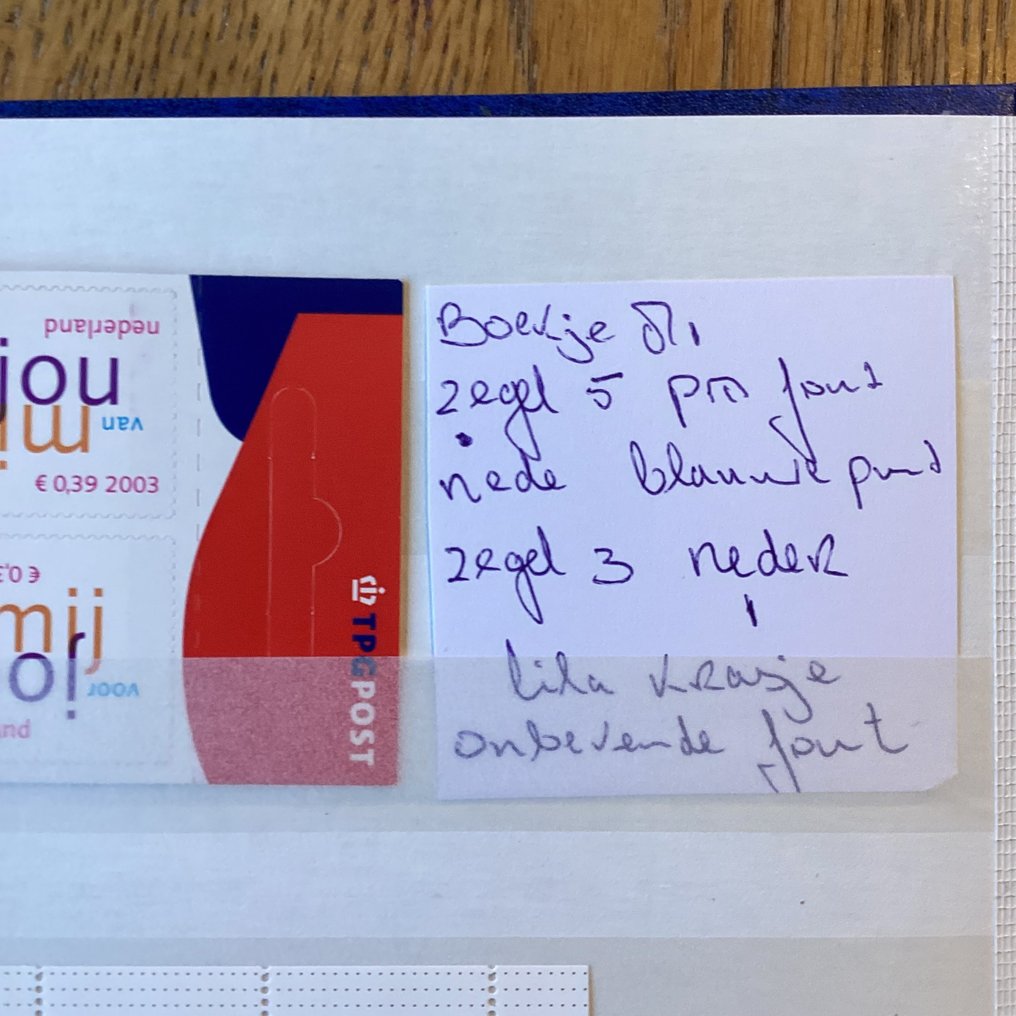 nederland
nou
mij
van
€ 0,39 2003
€ 0,3
mij
jo
voor
nd
TPGPOST
Boekje 71
zegel 5 pm fout
nede blauwe punt
zegel 3 neder
lila krasje
onbekende fout